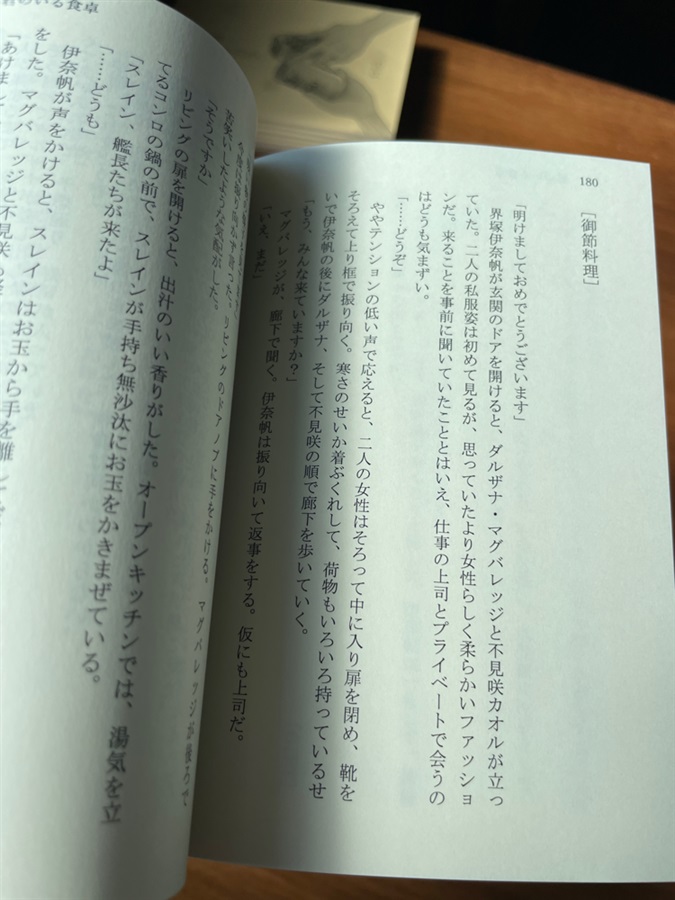 180
[御節料理]
「明けましておめでとうございます」
界塚伊奈帆が玄関のドアを開けると、ダルザナ・マグバレッジと不見咲カオルが立っ
ていた。二人の私服姿は初めて見るが、思っていたより女性らしく柔らかいファッショ
ンだ。来ることを事前に聞いていたこととはいえ、仕事の上司とプライベートで会うの
はどうも気まずい。
「……どうぞ」
ややテンションの低い声で応えると、二人の女性はそろって中に入り扉を閉め、靴を
そろえて上り框で振り向く。寒さのせいか着ぶくれして、荷物もいろいろ持っているせ
いで伊奈帆の後にダルザナ、そして不見咲の順で廊下を歩いていく。
「もう、みんな来ていますか？」
マグバレッジが、廊下で聞く。伊奈帆は振り向いて返事をする。仮にも上司だ。
「いえ、まだ」
振り向かず言った。リビングのドアノブに手をかける。マグバレッジが後ろで
苦笑いしたような気配がした。
「そうですか」
リビングの扉を開けると、出汁のいい香りがした。オープンキッチンでは、湯気を立
てるコンロの鍋の前で、スレインが手持ち無沙汰にお玉をかきまぜている。
「スレイン、艦長たちが来たよ」
「……どうも」
伊奈帆が声をかけると、スレインはお玉から手を離し
をした。マグバレッジと不見咲も
「あけまし
のいる食卓